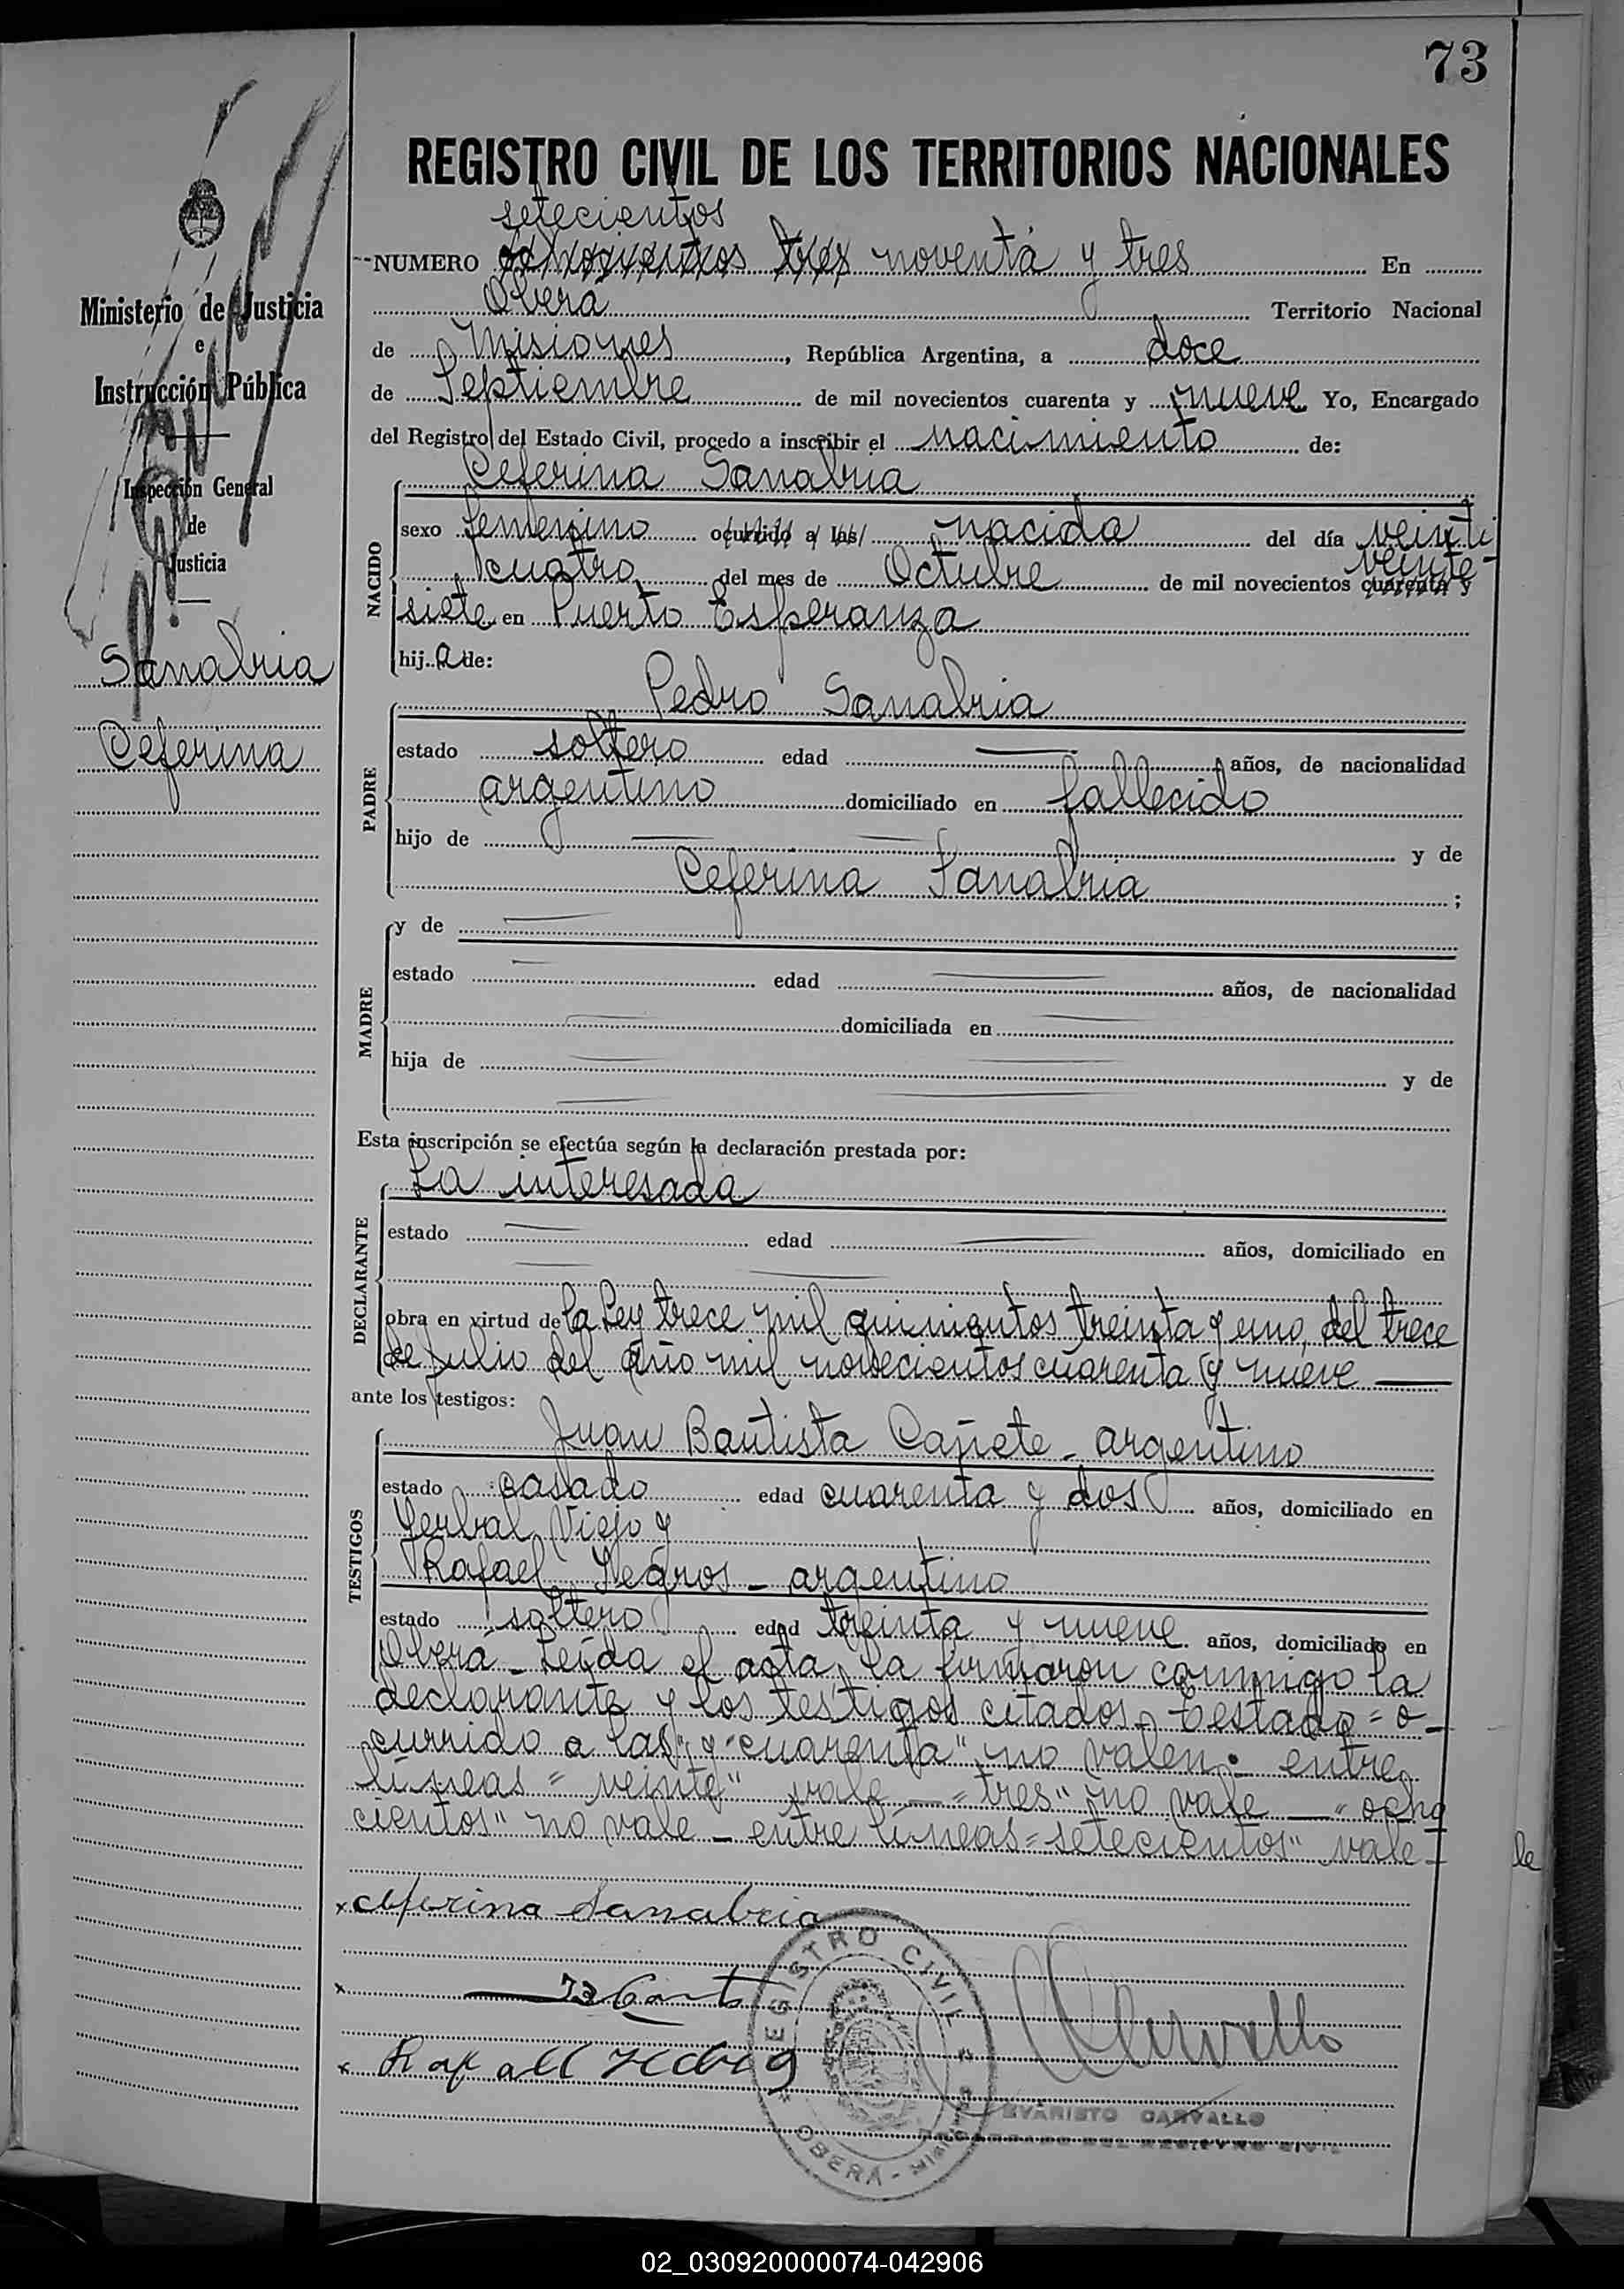 73
REGISTRO CIVIL DE LOS TERRITORIOS NACIONALES
setecientos
NUMERO ochocientos tres noventa y tres En
Oberá Territorio Nacional
de Misiones, República Argentina, a doce
de Septiembre de mil novecientos cuarenta y nueve Yo, Encargado
del Registro del Estado Civil, procedo a inscribir el nacimiento de:
Ministerio de Justicia
e
Instrucción Pública
Inspección General
de
Justicia
Sanabria
Ceferina
Ceferina Sanabria
NACIDO
sexo femenino ocurrido a las nacida del día veinti
veinte-
cuatro del mes de Octubre de mil novecientos cuarenta y
siete en Puerto Esperanza
hija de:
Pedro Sanabria
PADRE
estado soltero edad — años, de nacionalidad
argentino domiciliado en fallecido
hijo de — — y de
Ceferina Sanabria ;
MADRE
y de —
estado — edad — años, de nacionalidad
— domiciliada en —
hija de — — y de
— —
Esta inscripción se efectúa según la declaración prestada por:
La interesada
DECLARANTE
estado — edad — años, domiciliado en
— —
obra en virtud de la Ley trece mil quinientos treinta y uno, del trece
de julio del año mil novecientos cuarenta y nueve —
ante los testigos:
Juan Bautista Cañete - argentino
TESTIGOS
estado casado edad cuarenta y dos años, domiciliado en
Yerbal Viejo y
Rafael Negros - argentino
estado soltero edad treinta y nueve años, domiciliado en
Oberá - Leída el acta, la firmaron conmigo la
declarante y los testigos citados - Testado = o-
currido a las" y "cuarenta" no valen: entre
líneas = veinte" vale — "tres" no vale — "ocho
cientos" no vale - entre líneas = setecientos" vale -
x ceferina Sanabria
x
x
REGISTRO CIVIL
OBERÁ - Misiones
EVARISTO CARVALLO
ENCARGADO DEL REGISTRO CIVIL
02_030920000074-042906